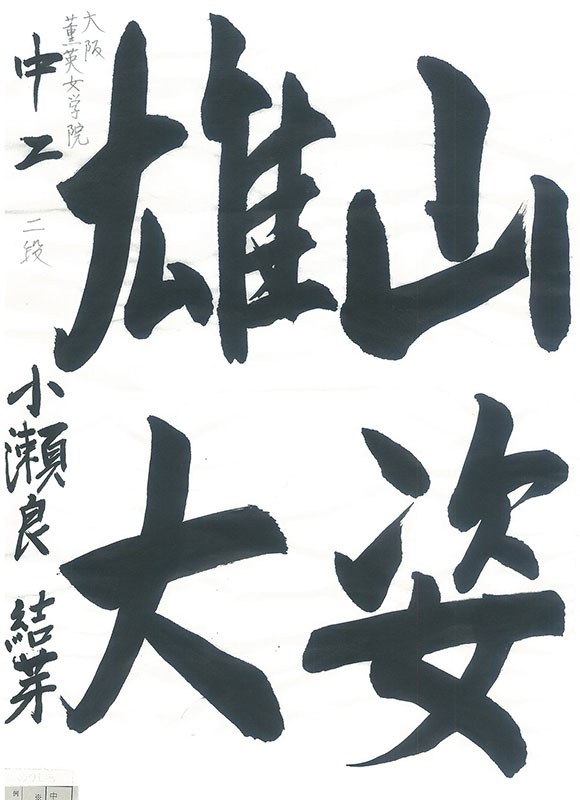 山姿
雄大
大阪
薫英女学院
中二
二段
小瀬良 結芽
中
※
例